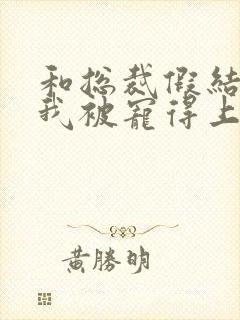 和总裁假结
我被宠得上
黄勝明